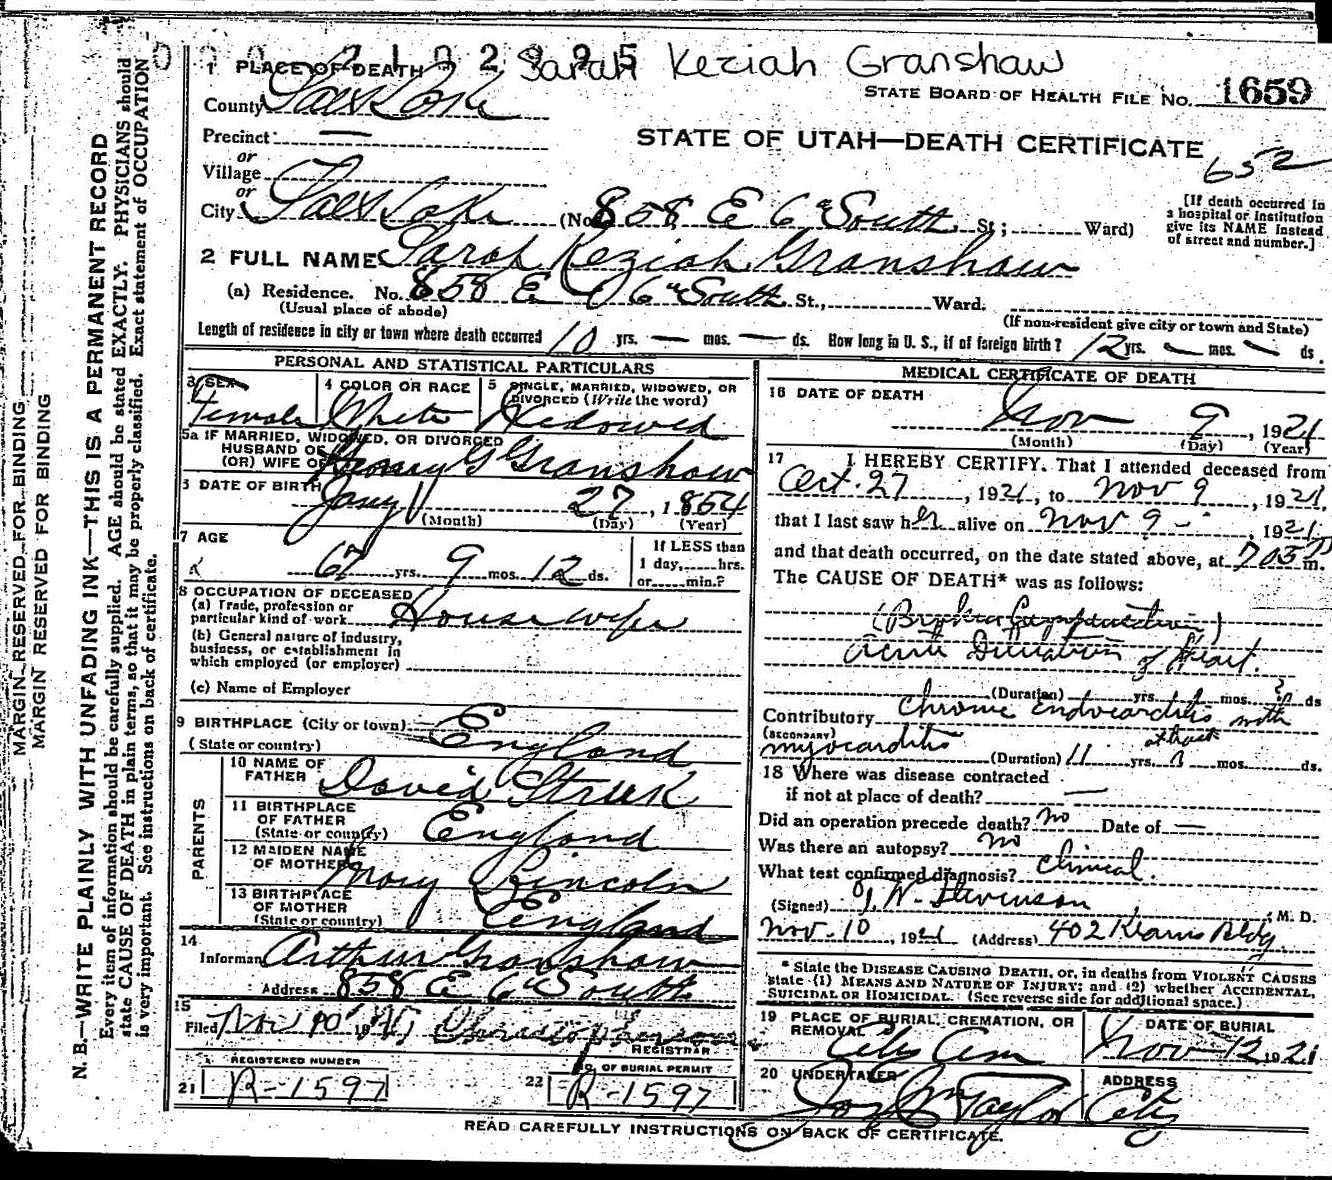 2 1 0 2 2 9 9 5 Sarah Keziah Granshaw
1 PLACE OF DEATH
STATE BOARD OF HEALTH FILE No. 1659
County Salt Lake
Precinct —
STATE OF UTAH—DEATH CERTIFICATE
652
or
Village
or
City Salt Lake (No. 858 E 6th South St; Ward)
[If death occurred in
a hospital or institution
give its NAME instead
of street and number.]
2 FULL NAME Sarah Keziah Granshaw
(a) Residence. No. 858 E 6th South St., Ward.
(Usual place of abode) (If non-resident give city or town and State)
Length of residence in city or town where death occurred 10 yrs. — mos. — ds. How long in U. S., if of foreign birth? 12 yrs. — mos. — ds.
PERSONAL AND STATISTICAL PARTICULARS
3 SEX Female
4 COLOR OR RACE White
5 SINGLE, MARRIED, WIDOWED, OR
DIVORCED (Write the word) Widowed
5a IF MARRIED, WIDOWED, OR DIVORCED
HUSBAND OF
(OR) WIFE OF Henry G Granshaw
DATE OF BIRTH Jany 27, 1854
(Month) (Day) (Year)
7 AGE
67 yrs. 9 mos. 12 ds.
If LESS than
1 day, hrs.
or min.?
8 OCCUPATION OF DECEASED
(a) Trade, profession or
particular kind of work Housewife
(b) General nature of industry,
business, or establishment in
which employed (or employer)
(c) Name of Employer
9 BIRTHPLACE (City or town)
(State or country) England
PARENTS
10 NAME OF
FATHER David
11 BIRTHPLACE
OF FATHER
(State or country) England
12 MAIDEN NAME
OF MOTHER Mary Lincoln
13 BIRTHPLACE
OF MOTHER
(State or country) England
14
Informant Arthur Granshaw
Address 858 E 6th South
15
Filed Nov 10 1921 Christopherson
REGISTRAR
REGISTERED NUMBER
21 R-1597
NO. OF BURIAL PERMIT
22 R-1597
MEDICAL CERTIFICATE OF DEATH
16 DATE OF DEATH
Nov 9, 1921
(Month) (Day) (Year)
17 I HEREBY CERTIFY, That I attended deceased from
Oct. 27, 1921, to Nov 9, 1921,
that I last saw her alive on Nov 9 -, 1921,
and that death occurred, on the date stated above, at 7 05 P m.
The CAUSE OF DEATH* was as follows:
(Broken Compensation)
acute Dilitation of Heart.
(Duration) yrs. mos. ds
Contributory Chronic Endocarditis with
(SECONDARY)
myocarditis
(Duration) 11 yrs. mos. ds.
18 Where was disease contracted
if not at place of death? —
Did an operation precede death? no Date of —
Was there an autopsy? no
What test confirmed diagnosis? Clinical.
(Signed) J. W. Stevenson, M. D.
Nov. 10, 1921 (Address) 402 Kearns Bldg
* State the DISEASE CAUSING DEATH, or, in deaths from VIOLENT CAUSES
state (1) MEANS AND NATURE OF INJURY; and (2) whether ACCIDENTAL,
SUICIDAL OR HOMICIDAL. (See reverse side for additional space.)
19 PLACE OF BURIAL, CREMATION, OR
REMOVAL City Cem
DATE OF BURIAL
Nov 12 1921
20 UNDERTAKER
Jos Wm Taylor
ADDRESS
City
READ CAREFULLY INSTRUCTIONS ON BACK OF CERTIFICATE.
MARGIN RESERVED FOR BINDING
MARGIN RESERVED FOR BINDING
N. B.—WRITE PLAINLY WITH UNFADING INK—THIS IS A PERMANENT RECORD
Every item of information should be carefully supplied. AGE should be stated EXACTLY. PHYSICIANS should
state CAUSE OF DEATH in plain terms, so that it may be properly classified. Exact statement of OCCUPATION
is very important. See instructions on back of certificate.